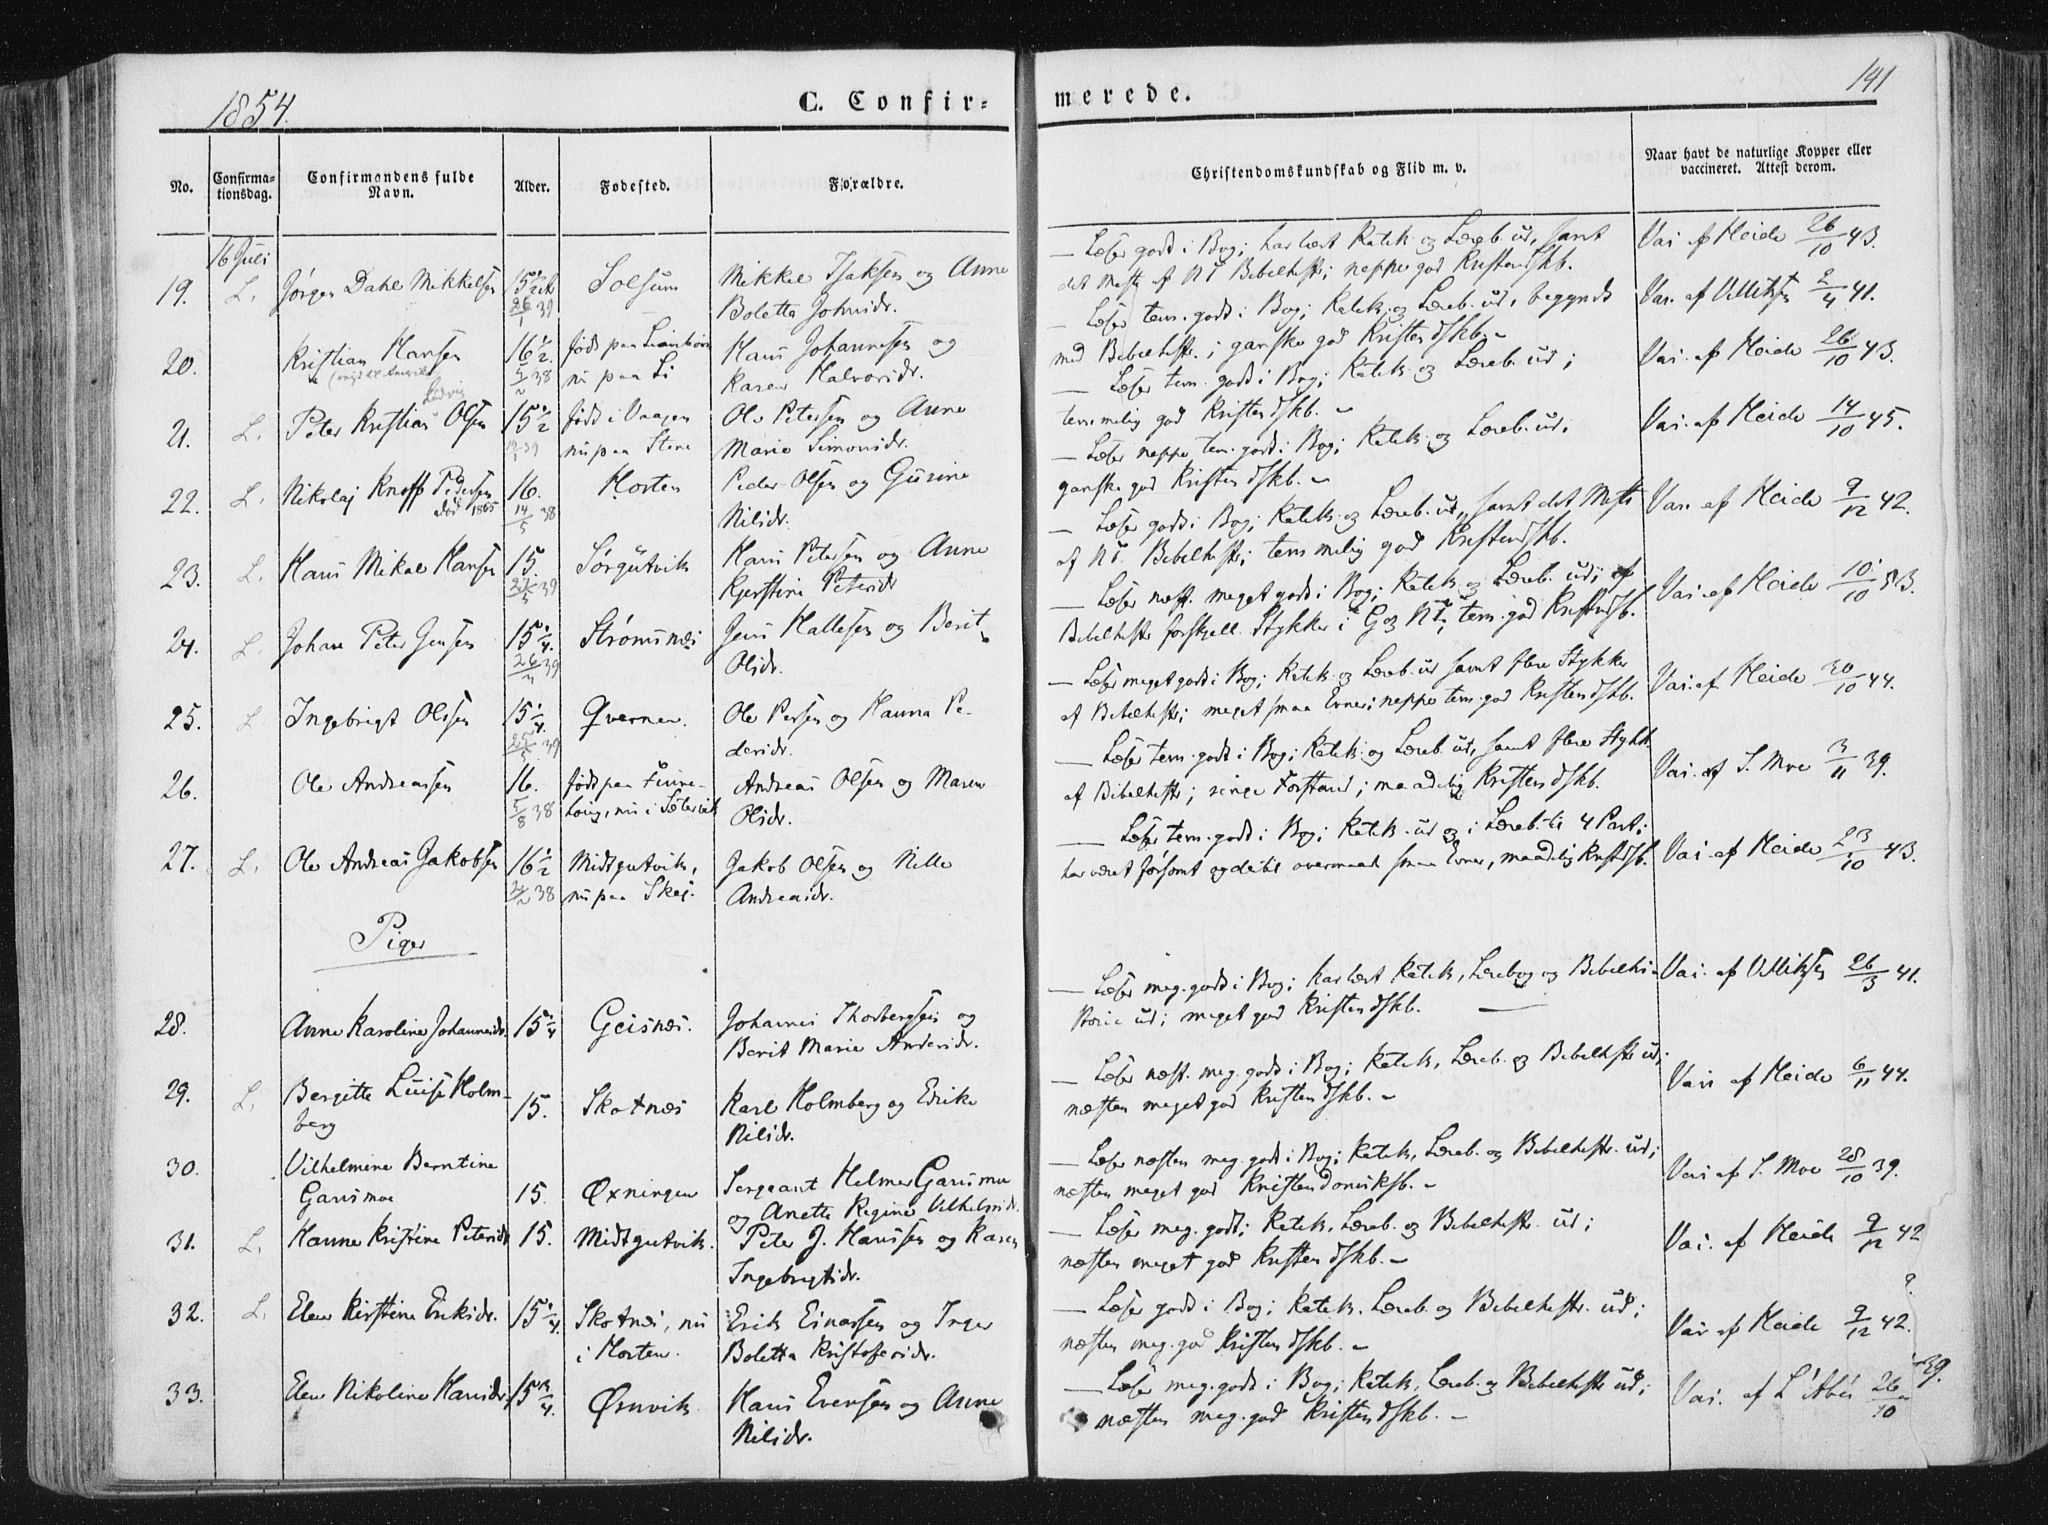 1854.
C. Confir-
merede.
141
No.
Confirma-
tionsdag.
Confirmandens fulde
Navn.
Alder.
Fødested.
Forældre.
Christendomskundskab og Flid m. v.
Naar havt de naturlige Kopper eller
vaccineret. Attest derom.
16 Juli
19.
L.
Jørgen Dahl Mikkelsen
26/1 39
Solsum
Mikkel Isaksen og Anne
Boletta Johnsdr.
— Læser godt i Bog; har lært Katek. og Læreb. ud, samt
det Meste af NT Bibelhist; neppe god Kristendskb.
Vac. af Heide 26/10 43.
20.
Kristian Hansen
16 1/2.
5/2 38
nu paa Li
Hans Johannesen og
Karen Halvorsdr.
— Læser tem. godt i Bog; Katek. og Læreb. ud, begyndt
med Bibelhistr.; ganske god Kristendskb. –
Vac. af 2/4 41.
21.
L.
Peter Kristian Ludvig Olsen
15 1/2
født i Vaagen
nu paa Stene
Ole Petersen og Anne
Marie Simonsdr.
— Læser tem. godt i Bog; Katek. og Læreb. ud;
temmelig god Kristendskb. –
Vac. af Heide 26/10 43.
22.
L.
Nikolaj Knoff Pedersen
død 1865
16.
14/5 38
Horten
Peder Olsen og Gurine
Nilsdr.
— Læser neppe tem. godt i Bog; Katek. og Læreb. ud;
ganske god Kristendskb. –
Vac. af Heide 14/10 45.
23.
L.
Hans Mikal Hansen
15.
27/5 39
Sørgutvik
Hans Petersen og Anne
Kjerstine Petersdr
— Læser godt i Bog; Katek. og Læreb. ud, samt det Meste
af NT. Bibelhistr; temmelig god Kristendskb.
Vac. af Heide 9/12 42.
24.
L.
Johan Peter Jensen
15 1/4.
Strømsnæs
Jens Hallesen og Berit
Olsdr.
— Læser næst. meget godt i Bog; Katek. og Læreb. ud; af
Bibelhistr forskjell. Stykker i G og NT; tem. god Kristendskb.
Vac. af Heide 10/10 53.
25.
L
Ingebrigt Olsen
15 1/4.
25/5 39
Qvernen.
Ole Persen og Hanna Pe-
dersdr.
— Læser meget godt i Bog; Katek. og Læreb. ud samt flere Stykker
af Bibelhistr; meget smaa Evner; neppe tem. god Kristendskb.
Vac. af Heide 30/10 44.
26.
Ole Andreassen
16.
5/8 38
Andreas Olsen og Maren
Olsdr.
— Læser tem. godt i Bog; Katek. og Læreb. ud, samt flere Stykk
af Bibelhistr; ringe Forstand; maadelig Kristendskb.
Vac. af S. Moe 3/11 39.
27.
L.
Ole Andreas Jakobsen
16 1/2
38
Midtgutvik,
nu paa Skej.
Jakob Olsen og Nille
Andreasdr.
— Læser tem. godt i Bog; Katek. ud og i Læreb. til 4 Part;
har været forsømt og dertil overmaade smaa Evner, maadelig Kristdsb.
Vac. af Heide 23/10 43.
Piger
28.
Anne Karoline Johannesdr.
15 1/4
Geisnæs.
Johannes Thorbergsen og
Berit Marie Andersdr.
— Læser meg. godt i Bog; har lært Katek, Lærebog og Bibelhi-
storie ud; meget god Kristendskb.
Vac. af 26/3 41.
29.
L.
Bergitte Luise Holm-
berg
15.
Skotnæs
Karl Holmberg og Edrike
Nilsdr.
— Læser næst. meg. godt i Bog; Katek, Læreb. og Bibelhistr ud;
næsten meget god Kristendskb. –
Vac af Heide 6/11 44.
30.
Vilhelmine Berntine
Garsmoe
15.
Øxningen
Sergeant Helmer Garsmoe
og Anette Regine Vilhelmsdr.
— Læser næsten meg. godt i Bog; Katek, Læreb. og Bibelhistr. ud;
næsten meget god Kristendomsksb. –
Vac af S. Moe 28/10 39.
31.
L.
Hanne Kristine Petersdr
15.
Midtgutvik.
Peter J. Hanssen og Karen
Ingebrigtsdr.
— Læser meg. godt; Katek, Læreb. og Bibelhistr. ud;
næsten meget god Kristendskb. –
Vac. af Heide 9/12 42
32.
L.
Elen Kirstine Eriksdr.
15 1/4.
Skotnæs, nu
i Horten.
Erik Einarsen og Inger
Boletta Kristofersdr.
— Læser godt i Bog; Katek. Læreb. og Bibelhistr. ud;
næsten meg. god Kristendskb. –
Vac af Heide 9/12 42.
?
33.
Elen Nikoline Hansdr
15 3/4.
Ørnvik
Hans Evensen og Anne
Nilsdr.
— Læser meg. godt i Bog; Katek, Læreb. og Bibelhistr ud;
næsten meg. god Kristendskb. –
Vac. af 26/10 39.